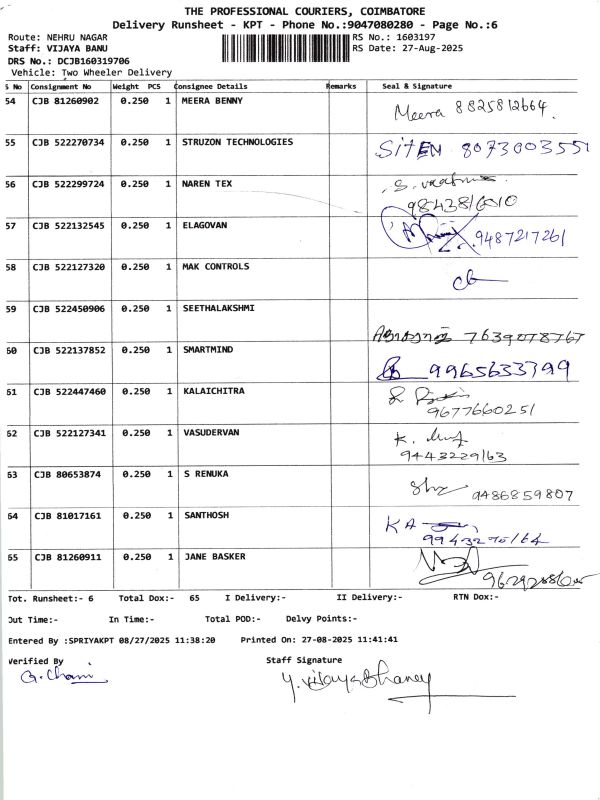 THE PROFESSIONAL COURIERS, COIMBATORE
Delivery Runsheet - KPT - Phone No.:9047080280 - Page No.:6
Route: NEHRU NAGAR RS No.: 1603197
Staff: VIJAYA BANU RS Date: 27-Aug-2025
DRS No.: DCJB160319706
Vehicle: Two Wheeler Delivery
S No Consignment No Weight PCS Consignee Details Remarks Seal & Signature
54 CJB 81260902 0.250 1 MEERA BENNY Meera 8825812664.
55 CJB 522270734 0.250 1 STRUZON TECHNOLOGIES SitEN 8073003551
56 CJB 522299724 0.250 1 NAREN TEX
9843816010
57 CJB 522132545 0.250 1 ELAGOVAN 9487217261
58 CJB 522127320 0.250 1 MAK CONTROLS
59 CJB 522450906 0.250 1 SEETHALAKSHMI 7639078767
60 CJB 522137852 0.250 1 SMARTMIND 9965633799
61 CJB 522447460 0.250 1 KALAICHITRA
9677660251
62 CJB 522127341 0.250 1 VASUDERVAN K.
9443229163
63 CJB 80653874 0.250 1 S RENUKA 9486859807
64 CJB 81017161 0.250 1 SANTHOSH KA
65 CJB 81260911 0.250 1 JANE BASKER
Tot. Runsheet:- 6 Total Dox:- 65 I Delivery:- II Delivery:- RTN Dox:-
Out Time:- In Time:- Total POD:- Delvy Points:-
Entered By :SPRIYAKPT 08/27/2025 11:38:20 Printed On: 27-08-2025 11:41:41
Verified By Staff Signature
G. Cham Y. Vijaya Bhaney